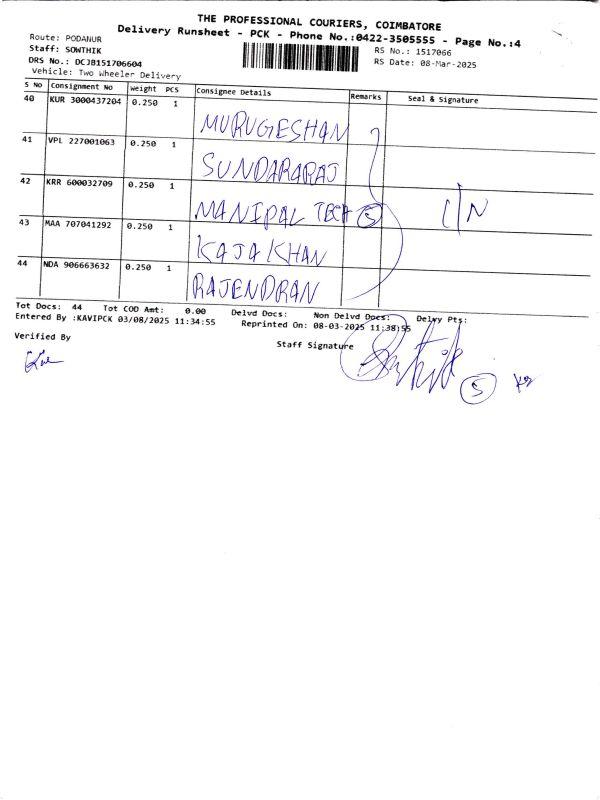 THE PROFESSIONAL COURIERS, COIMBATORE
Delivery Runsheet - PCK - Phone No.:0422-3505555 - Page No.:4
Route: PODANUR
Staff: SOWTHIK
RS No.: 1517066
DRS No.: DCJB151706604
RS Date: 08-Mar-2025
Vehicle: Two Wheeler Delivery
S No Consignment No Weight PCS Consignee Details Remarks Seal & Signature
40 KUR 3000437204 0.250 1 MURUGESHAN
41 VPL 227001063 0.250 1 SUNDARARAJ
42 KRR 600032709 0.250 1 MANIPAL TECH 5 C/N
43 MAA 707041292 0.250 1 KAJA KHAN
44 NDA 906663632 0.250 1 RAJENDRAN
Tot Docs: 44 Tot COD Amt: 0.00 Delvd Docs: Non Delvd Docs: Delvy Pts:
Entered By :KAVIPCK 03/08/2025 11:34:55 Reprinted On: 08-03-2025 11:38:55
Verified By Staff Signature
5